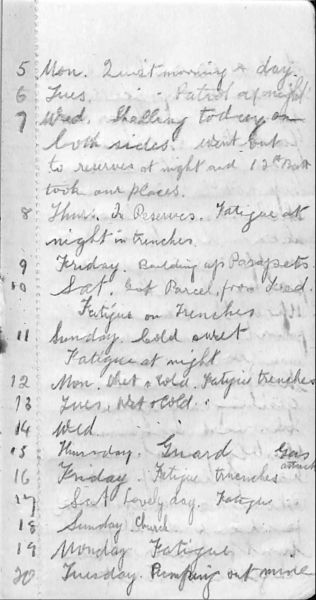 5 Mon. Quiet morning & day.
6 Tues. " Patrol at night
7 Wed. Shelling today on
both sides. Went out
to reserves at night and 12th Batt
took our places.
8 Thur. In Reserves. Fatigue at
night in trenches
9 Friday. Building up Parapets.
10 Sat. Got Parcel from
Fatigue on Trenches
11 Sunday. Cold & wet
Fatigue at night
12 Mon. Wet & Cold. Fatigue trenches
13 Tues. Wet & Cold.
14 Wed
15 Thursday. Guard Gas
attack
16 Friday. Fatigue trenches
17 Sat Lovely day. Fatigue
18 Sunday Church
19 Monday Fatigue
20 Tuesday. Pumping out mine